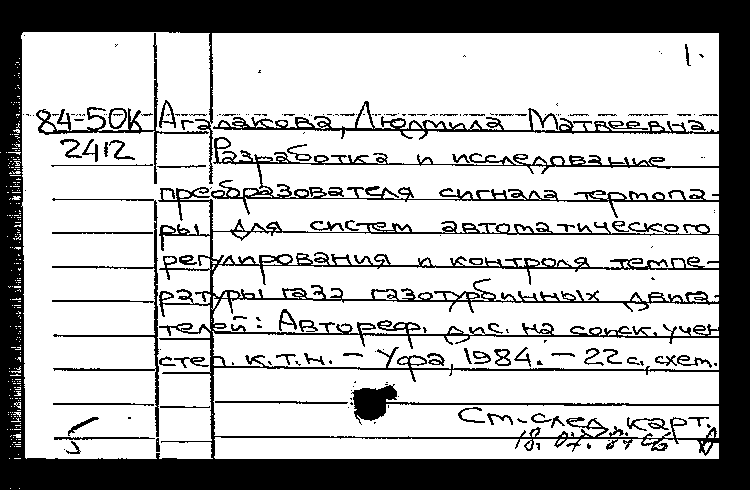 1.
84-50К Агалакова, Людмила Матвеевна.
2412 Разработка и исследование
преобразователя сигнала термопа-
ры для систем автоматического
регулирования и контроля темпе-
ратуры газа газотурбинных двига-
телей: Автореф. дис. на соиск. учен
степ. к.т.н. - Уфа, 1984. - 22 с., схет.
См. след. карт.
18. 07. 84